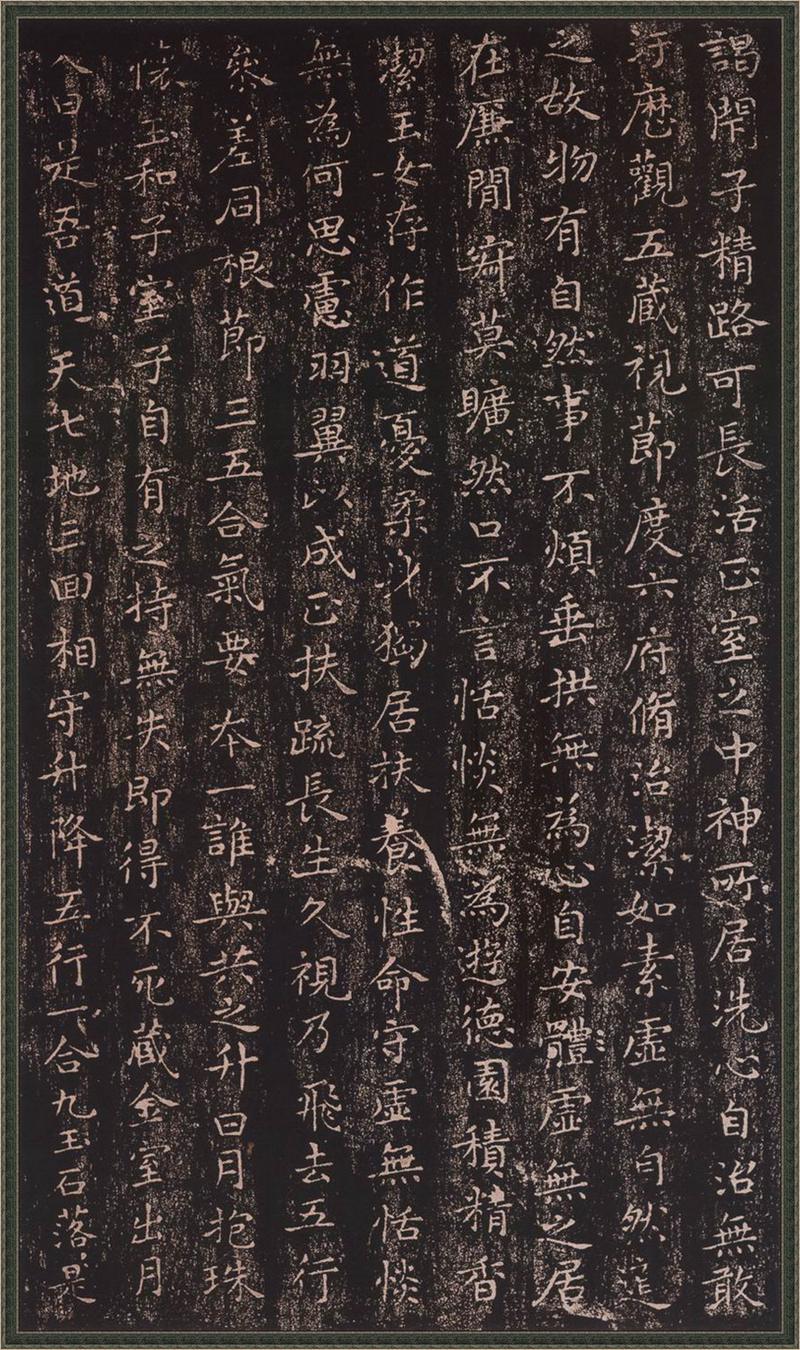 謁閉子精路可長活正室之中神所居洗心自治無敢
汙歷觀五藏視節度六府脩治潔如素虛無自然道
之故物有自然事不煩垂拱無為心自安體虛無之居
在廉間寂莫曠然口不言恬惔無為遊德園積精香
潔玉女存作道憂柔身獨居扶養性命守虛無恬惔
無為何思慮羽翼以成正扶疏長生久視乃飛去五行
參差同根節三五合氣要本一誰與共之升日月抱珠
懷玉和子室子自有之持無失即得不死藏金室出月
入日是吾道天七地三回相守升降五行一合九玉石落落是